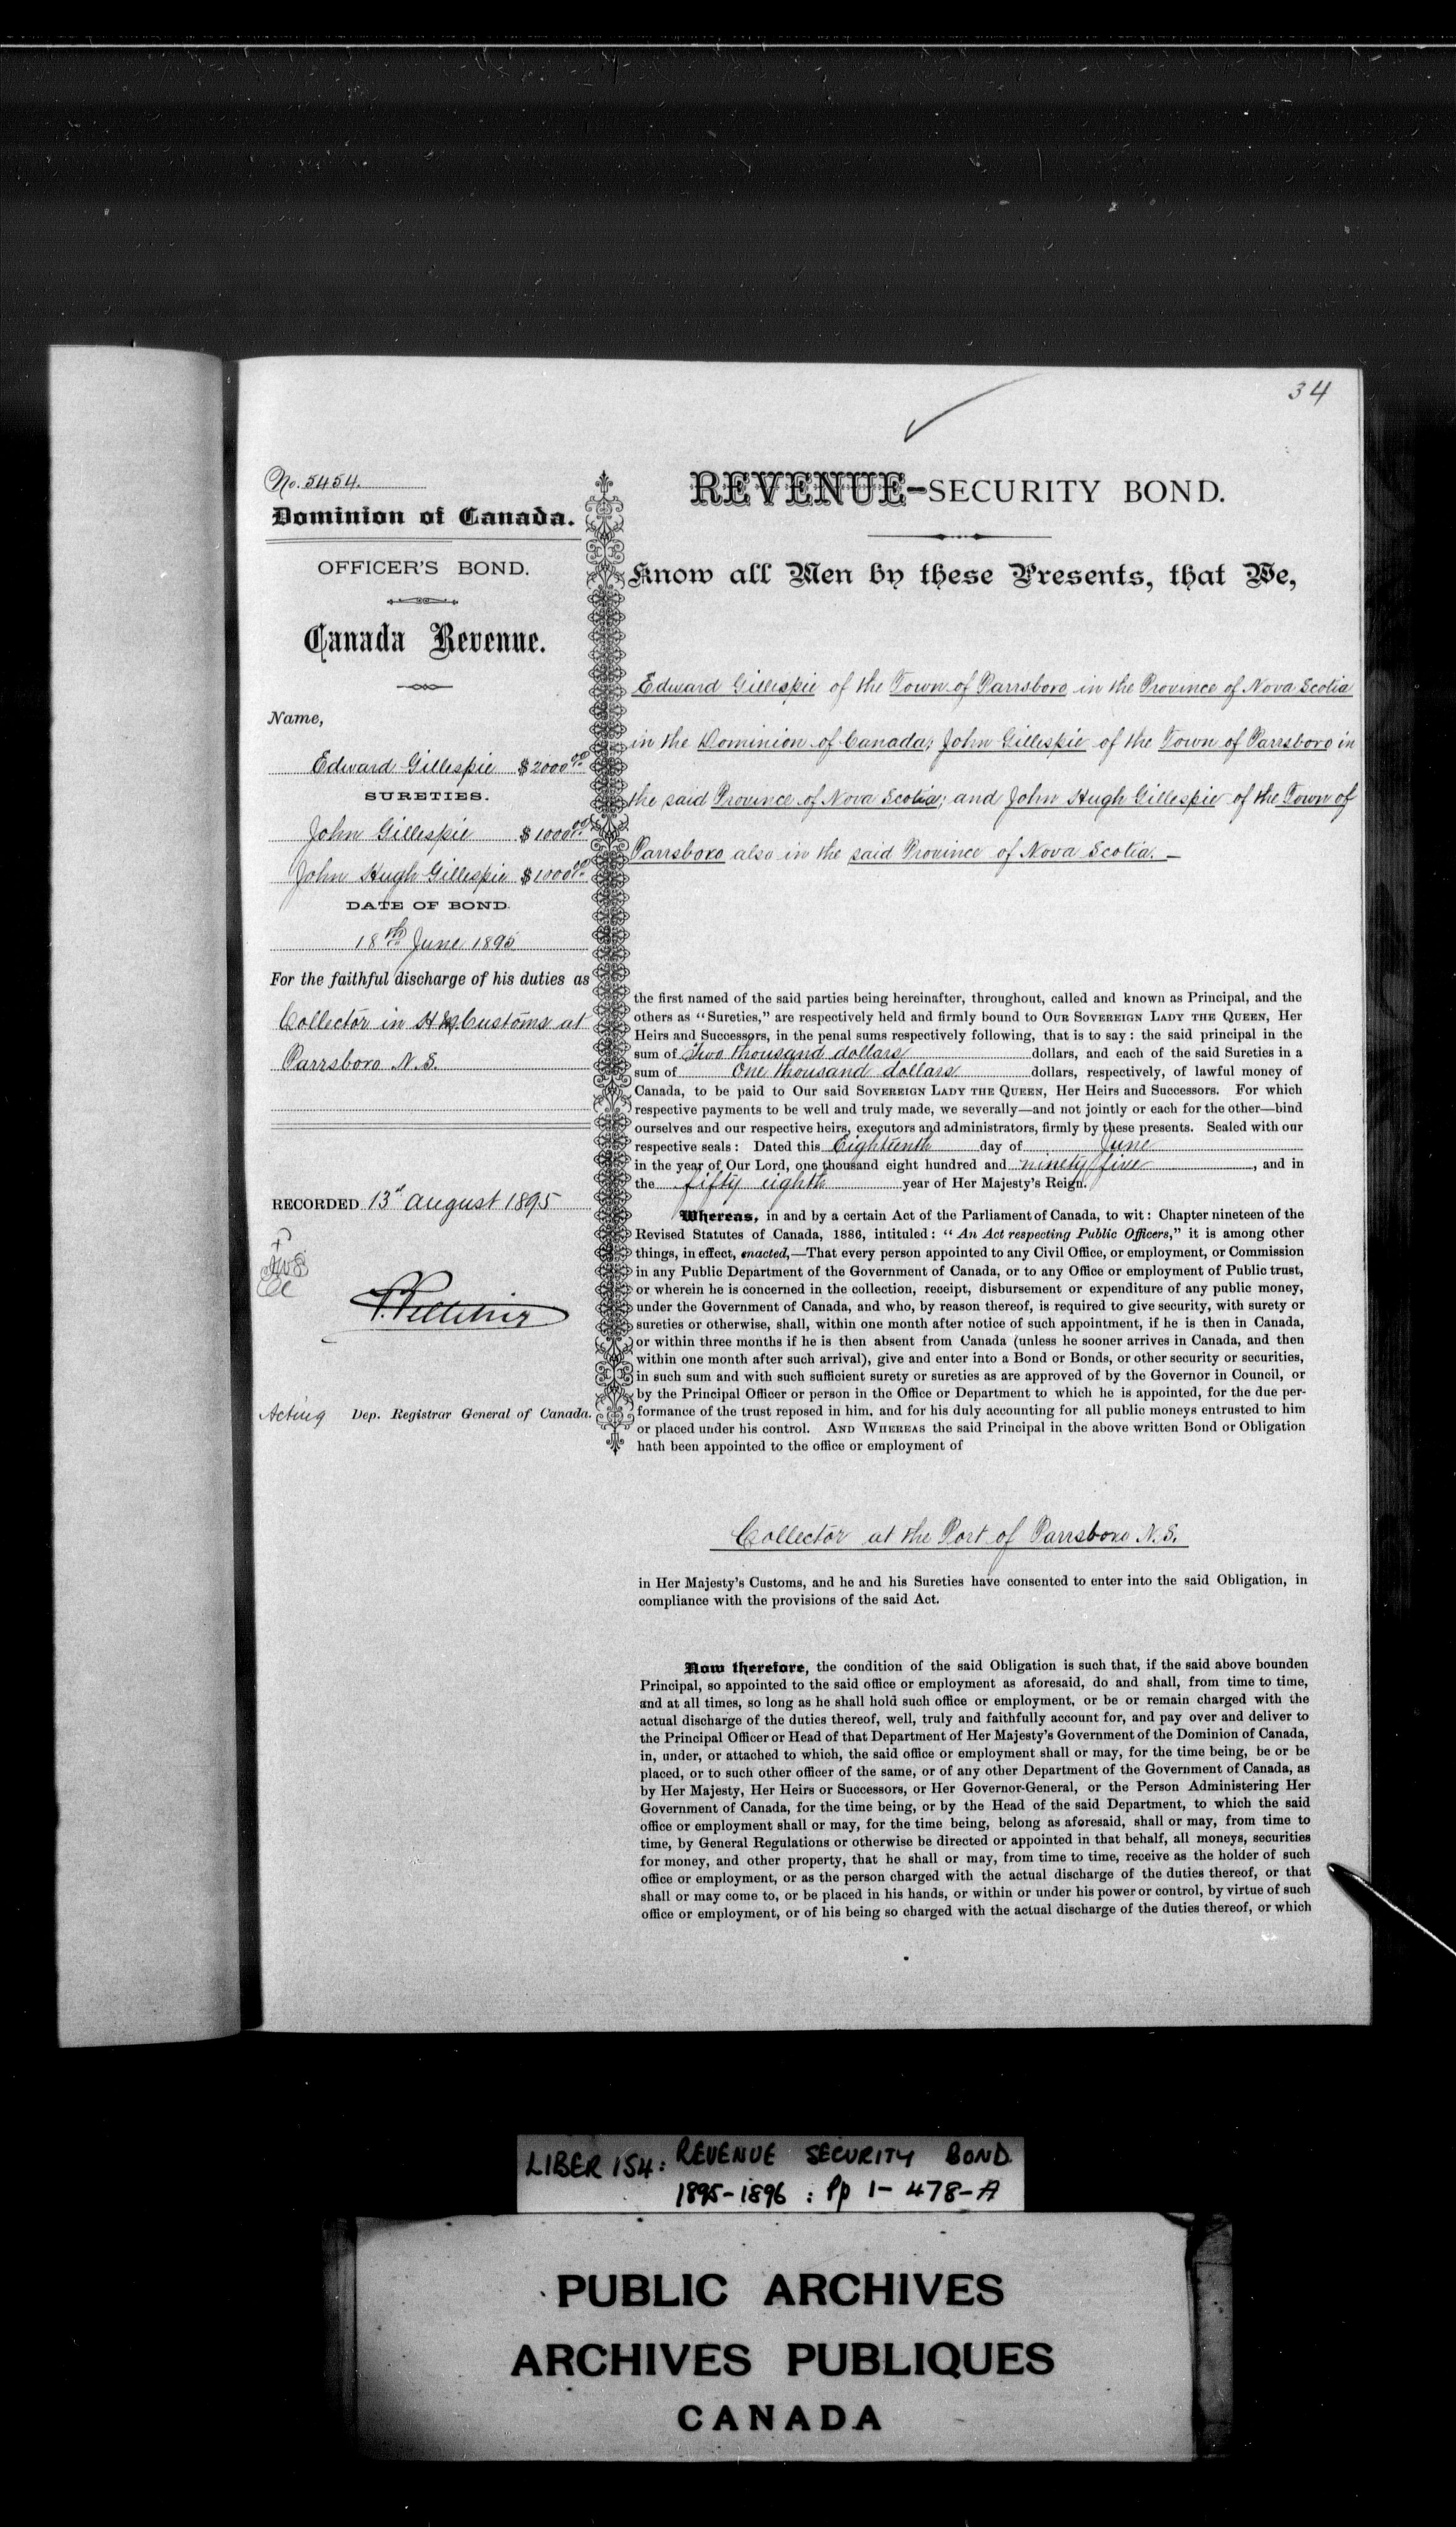 34
No. 5454.
Dominion of Canada.
OFFICER'S BOND.
Canada Revenue.
Name,
Edward Gillespie $2000.00
SURETIES.
John Gillespie $1000.00
John Hugh Gillespie $1000.00
DATE OF BOND.
18th June 1895
For the faithful discharge of his duties as
Collector in H M Customs at
Parrsboro N. S.
RECORDED 13th August 1895
Acting Dep. Registrar General of Canada.
REVENUE-SECURITY BOND.
Know all Men by these Presents, that We,
Edward Gillespie of the Town of Parrsboro in the Province of Nova Scotia
in the Dominion of Canada; John Gillespie of the Town of Parrsboro in
the said Province of Nova Scotia; and John Hugh Gillespie of the Town of
Parrsboro also in the said Province of Nova Scotia. —
the first named of the said parties being hereinafter, throughout, called and known as Principal, and the
others as "Sureties," are respectively held and firmly bound to OUR SOVEREIGN LADY THE QUEEN, Her
Heirs and Successors, in the penal sums respectively following, that is to say: the said principal in the
sum of Two thousand dollars dollars, and each of the said Sureties in a
sum of One thousand dollars dollars, respectively, of lawful money of
Canada, to be paid to Our said SOVEREIGN LADY THE QUEEN, Her Heirs and Successors. For which
respective payments to be well and truly made, we severally—and not jointly or each for the other—bind
ourselves and our respective heirs, executors and administrators, firmly by these presents. Sealed with our
respective seals: Dated this Eighteenth day of June
in the year of Our Lord, one thousand eight hundred and ninety five, and in
the fifty eighth year of Her Majesty's Reign.
Whereas, in and by a certain Act of the Parliament of Canada, to wit: Chapter nineteen of the
Revised Statutes of Canada, 1886, intituled: "An Act respecting Public Officers," it is among other
things, in effect, enacted,—That every person appointed to any Civil Office, or employment, or Commission
in any Public Department of the Government of Canada, or to any Office or employment of Public trust,
or wherein he is concerned in the collection, receipt, disbursement or expenditure of any public money,
under the Government of Canada, and who, by reason thereof, is required to give security, with surety or
sureties or otherwise, shall, within one month after notice of such appointment, if he is then in Canada,
or within three months if he is then absent from Canada (unless he sooner arrives in Canada, and then
within one month after such arrival), give and enter into a Bond or Bonds, or other security or securities,
in such sum and with such sufficient surety or sureties as are approved of by the Governor in Council, or
by the Principal Officer or person in the Office or Department to which he is appointed, for the due per-
formance of the trust reposed in him, and for his duly accounting for all public moneys entrusted to him
or placed under his control. AND WHEREAS the said Principal in the above written Bond or Obligation
hath been appointed to the office or employment of
Collector at the Port of Parrsboro N. S.
in Her Majesty's Customs, and he and his Sureties have consented to enter into the said Obligation, in
compliance with the provisions of the said Act.
Now therefore, the condition of the said Obligation is such that, if the said above bounden
Principal, so appointed to the said office or employment as aforesaid, do and shall, from time to time,
and at all times, so long as he shall hold such office or employment, or be or remain charged with the
actual discharge of the duties thereof, well, truly and faithfully account for, and pay over and deliver to
the Principal Officer or Head of that Department of Her Majesty's Government of the Dominion of Canada,
in, under, or attached to which, the said office or employment shall or may, for the time being, be or be
placed, or to such other officer of the same, or of any other Department of the Government of Canada, as
by Her Majesty, Her Heirs or Successors, or Her Governor-General, or the Person Administering Her
Government of Canada, for the time being, or by the Head of the said Department, to which the said
office or employment shall or may, for the time being, belong as aforesaid, shall or may, from time to
time, by General Regulations or otherwise be directed or appointed in that behalf, all moneys, securities
for money, and other property, that he shall or may, from time to time, receive as the holder of such
office or employment, or as the person charged with the actual discharge of the duties thereof, or that
shall or may come to, or be placed in his hands, or within or under his power or control, by virtue of such
office or employment, or of his being so charged with the actual discharge of the duties thereof, or which
LIBER 154: REVENUE SECURITY BOND
1895-1896 : Pp 1- 478-A
PUBLIC ARCHIVES
ARCHIVES PUBLIQUES
CANADA